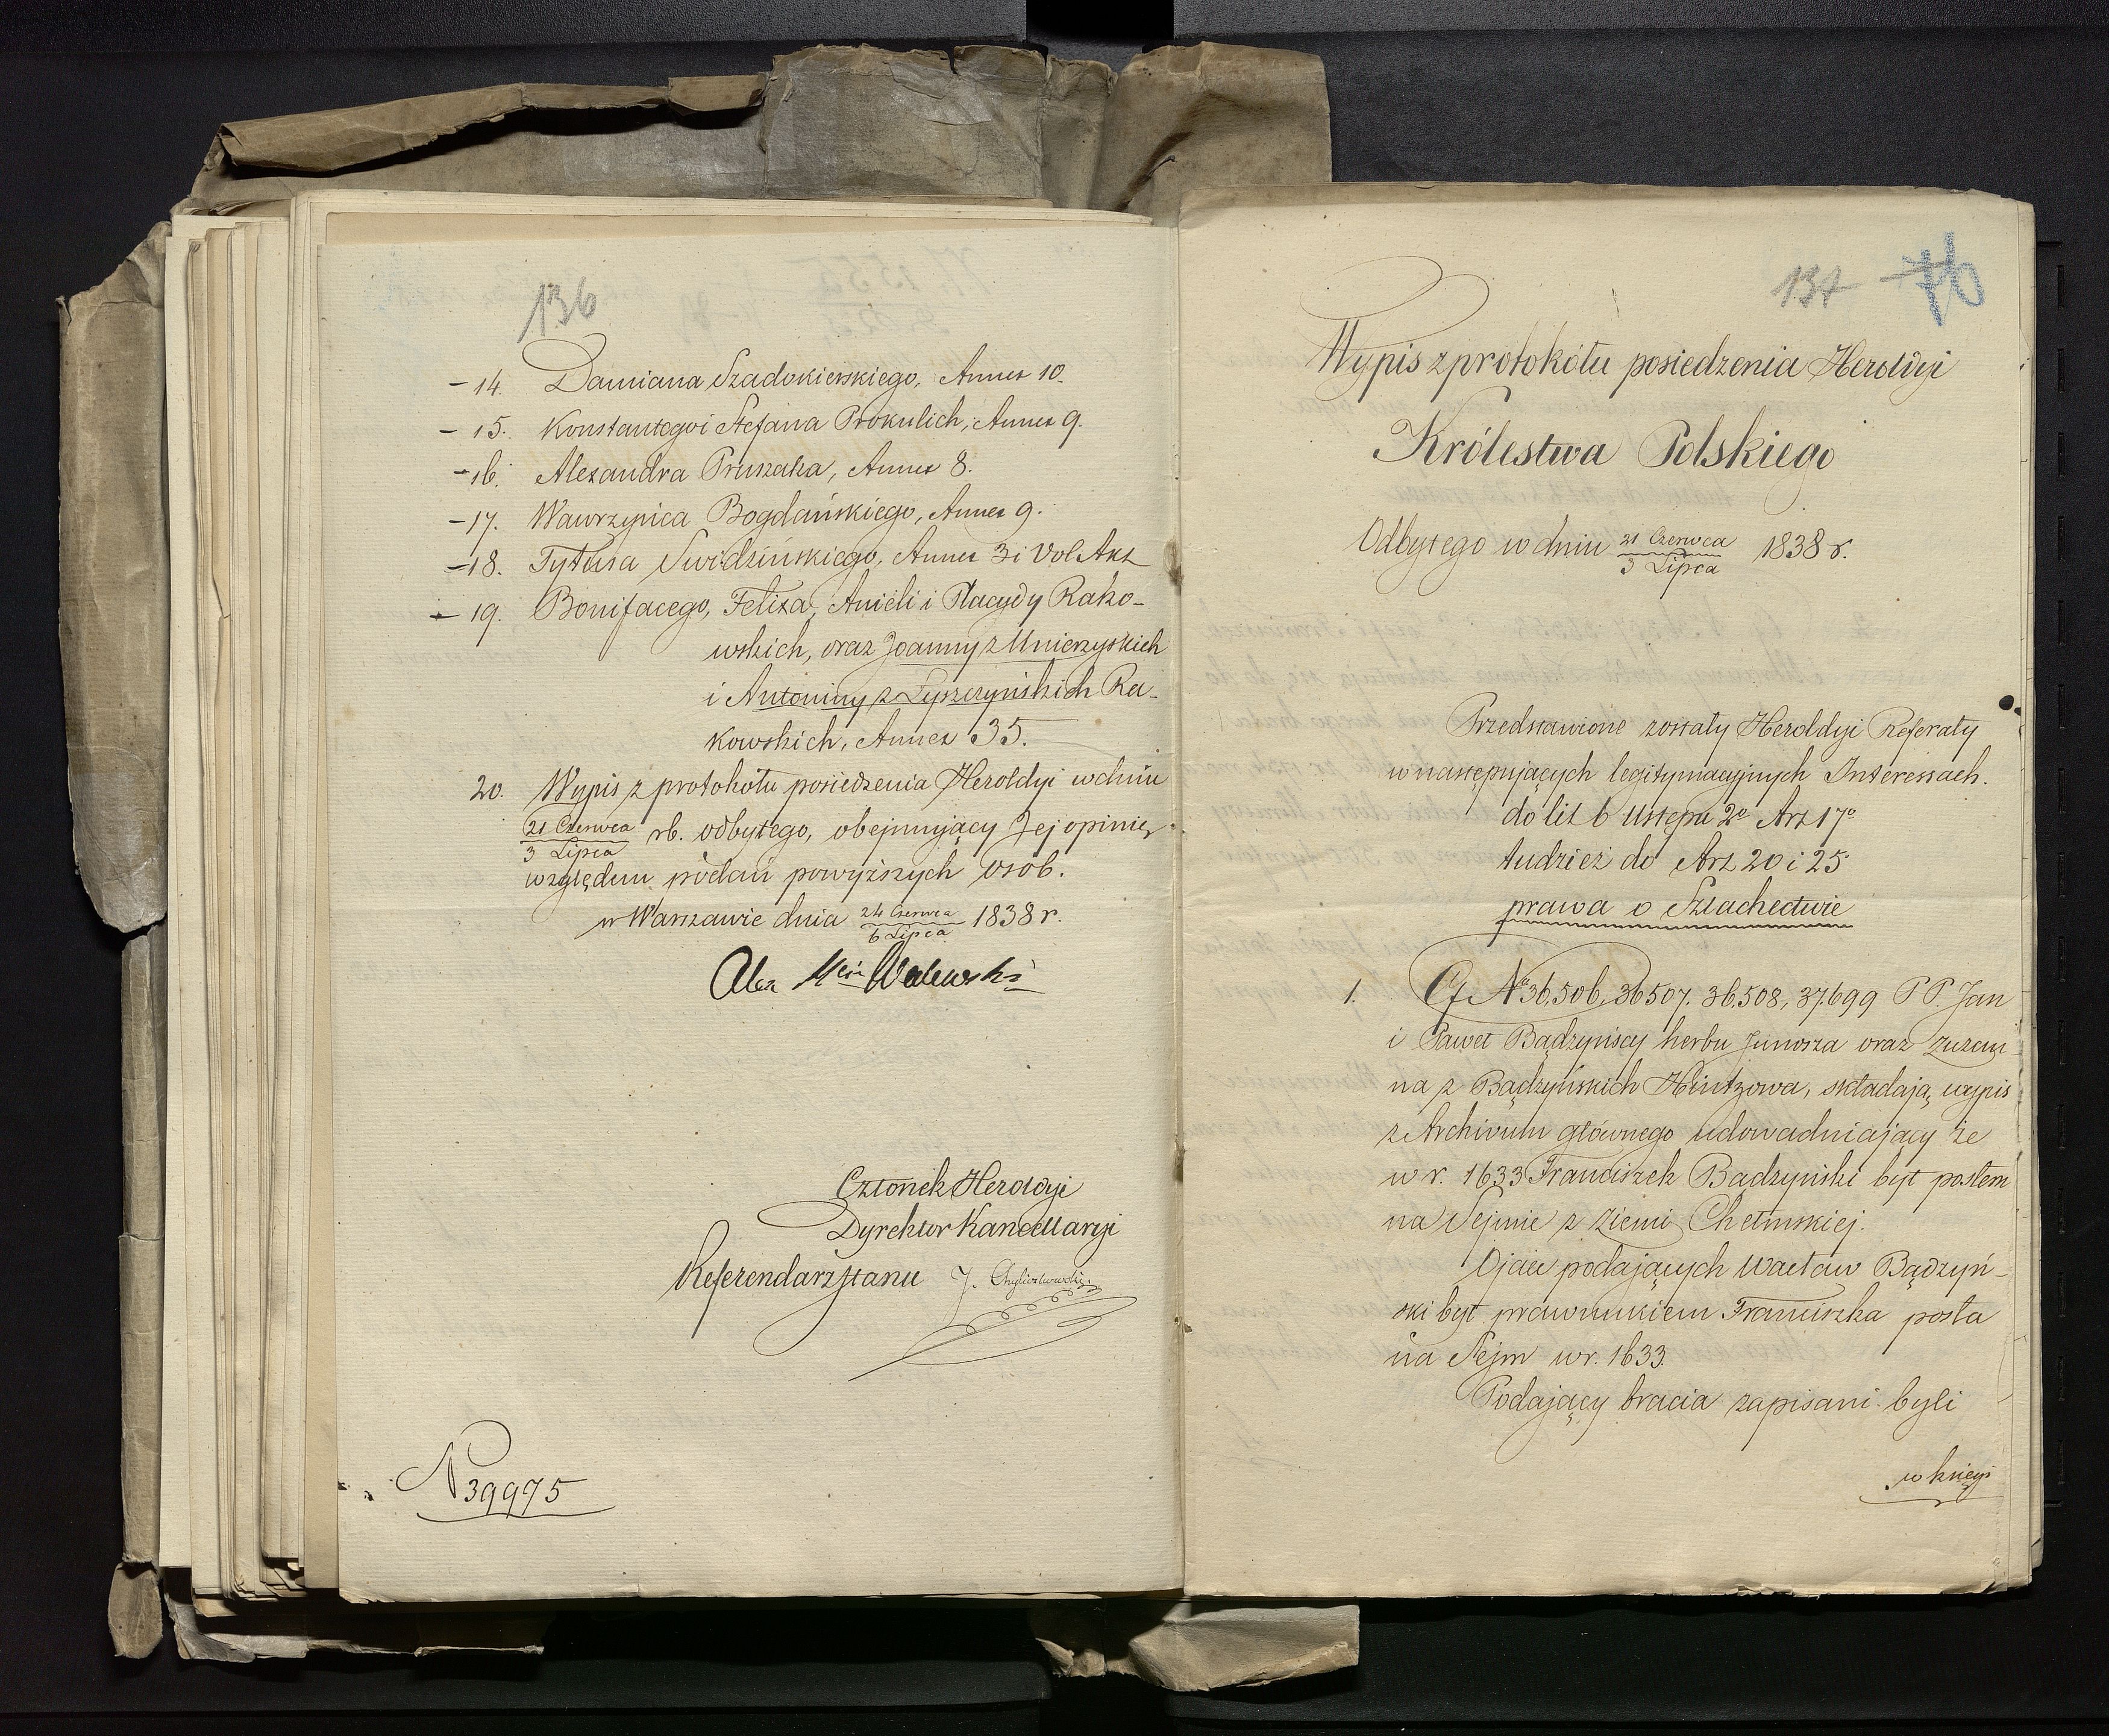 136
- 14. Damiana Szadokierskiego, Annex 10.
- 15. Konstantego i Stefana Prokulich, Annex 9.
- 16. Alexandra Pruszaka, Annex 8.
- 17. Wawrzyńca Bogdańskiego, Annex 9.
- 18. Tytusa Swidzińskiego, Annex 3 i Vol Akt
- 19. Bonifacego, Felixa, Anieli i Placydy Rako-
wskich, oraz Joanny z Mnierzyskich
i Antoniny z Łyszczyńskich Ra-
kowskich, Annex 35.
20. Wypis z protokołu posiedzenia Heroldyi w dniu
21 Czerwca
3 Lipca rb. odbytego, obejmujący Jej opinię
względem podań powyższych osób.
w Warszawie dnia 24 Czerwca 1838 r.
6 Lipca
Alex Walewski
Członek Heroldyi
Dyrektor Kancellaryi
Referendarz Stanu J.
N 39975
137 76
Wypis z protokółu posiedzenia Heroldyi
Królestwa Polskiego
Odbytego w dniu 21 Czerwca 1838 r.
3 Lipca
Przedstawione zostały Heroldyi Referaty
w następujących legitymacyjnych Interessach.
do lit b Ustępu 2o Art 17o
tudzież do Art 20 i 25
prawa o Szlachectwie
1. N 36,506, 36507. 36.508, 37.699 P P. Jan
i Paweł Bądzyńscy herbu Junosza oraz Zuzan-
na z Bądzyńskich Hintzowa, składają wypis
z Archivum głównego udowadniający że
w r. 1633 Franciszek Bądzyński był posłem
na Sejmie z ziemi Chełmskiej.
Ojciec podających Wacław Bądzyń-
ski był prawnukiem Franciszka posła
na Sejm w r. 1633.
Podający bracia zapisani byli
w księgi